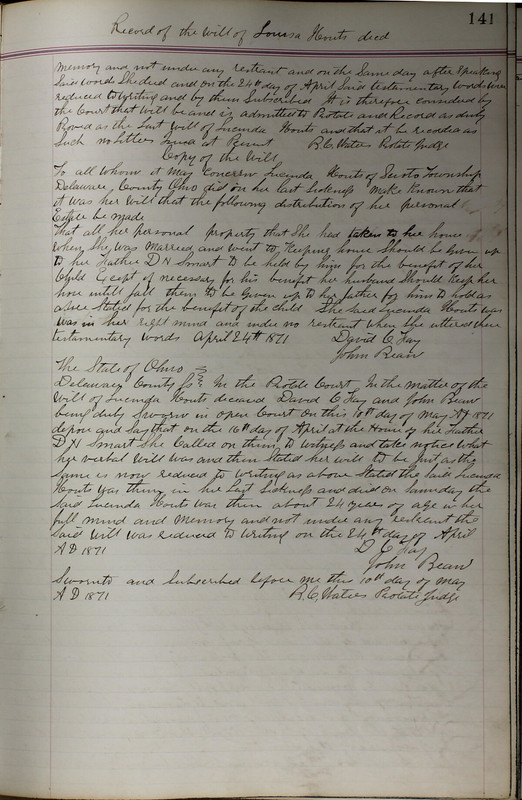 141
Record of the Will of Louisa Houts decd
Memory and not under any restraint and on the Same day after Speaking
Said words She died and on the 24th day of April Said testamentary words were
reduced to Writing and by them Subscribed It is therefore considered by
the Court that will be and is admitted to Probate and Record as duly
Proved as the Last Will of Lucinda Houts and that it be recorded as
Such no Letters Issued at Present R. C. Waters Probate Judge
Copy of the Will
To all whom it May Concern Lucinda Houts of Scioto Township
Delaware, County Ohio did on her last Sickness Make Known that
it was her will that the following distribution of her personal
be made
That all her personal property that She had taken to her house
when She was Married and went to Keeping house Should be given up
to her Father D N Smart to be held by him for the benefit of her
Child Except if necessary for his benefit her husband Should Keep her
untill fall then to be given up to her father for him to hold as
above Stated for the benefit of the child She Said Lucinda Houts was
was in her right mind and under no restraint when She uttered these
testamentary words April 24th 1871 David C Fay
John Bean
The State of Ohio
Delaware County SS In the Probate Court, In the Matter of the
Will of Lucinda Houts deceased David C Fay and John Bean
being duly Sworn in open Court on this 10th day of May AD 1871
depose and Say that on the 16th day of April at the House of her Father
D N Smart She Called on them to witness and take notice what
her verbal Will was and then Stated her will to be just as the
Same is now reduced to writing as above Stated the Said Lucinda
Houts was then in her Last Sickness and died on Saturday the
Said Lucinda Houts was then about 24 years of age in her
full mind and Memory and not under any restraint the
Said Will was reduced to Writing on the 24th day of April
AD 1871 D. C. Fay
John Bean
Sworn to and Subscribed before me this 10th day of May
AD 1871 R. C. Waters Probate Judge